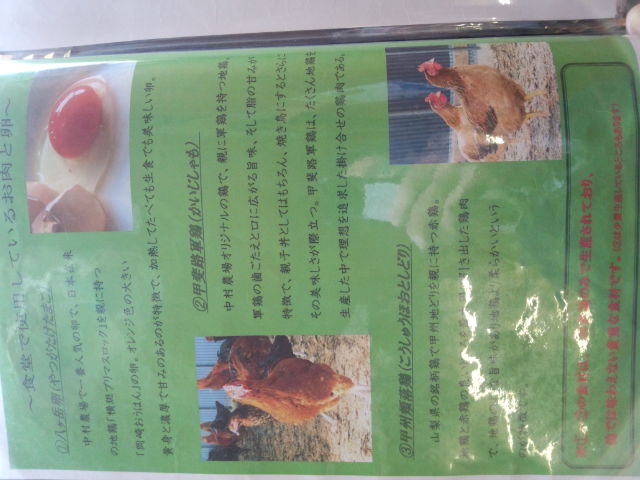 ～食堂で使用しているお肉と卵～
①八ヶ岳卵(やつがたけたまご)
中村農場で一番人気の卵で、日本
の地鶏「横斑プリマスロック」を親に持つ
「岡崎おうはん」の卵。オレンジ色の大きい
黄身と濃厚で甘みのあるのが特徴で、加熱してたべても生食でも美味しい卵。
②甲斐路軍鶏(かいじしゃも)
中村農場オリジナルの鶏で、親に軍鶏を持つ地鶏。
軍鶏の歯ごたえと口に広がる旨味、そして脂の甘みが
特徴で、親子丼としてはもちろん、焼き鳥にするとさらに
その美味しさが際立つ。甲斐路軍鶏は、たくさん地鶏を
生産した中で理想を追求した掛け合せの鶏肉である。
③甲州頬落鶏(こうしゅうほおとしどり)
山梨県の銘柄鶏で甲州地どりを親に持つ赤鶏。
地鶏と赤鶏の良い 引き出した鶏肉
で、地鶏の 旨味がより 柔らかいという
のが特徴です。
で生産されており、
他では味わえない貴重な食材です。